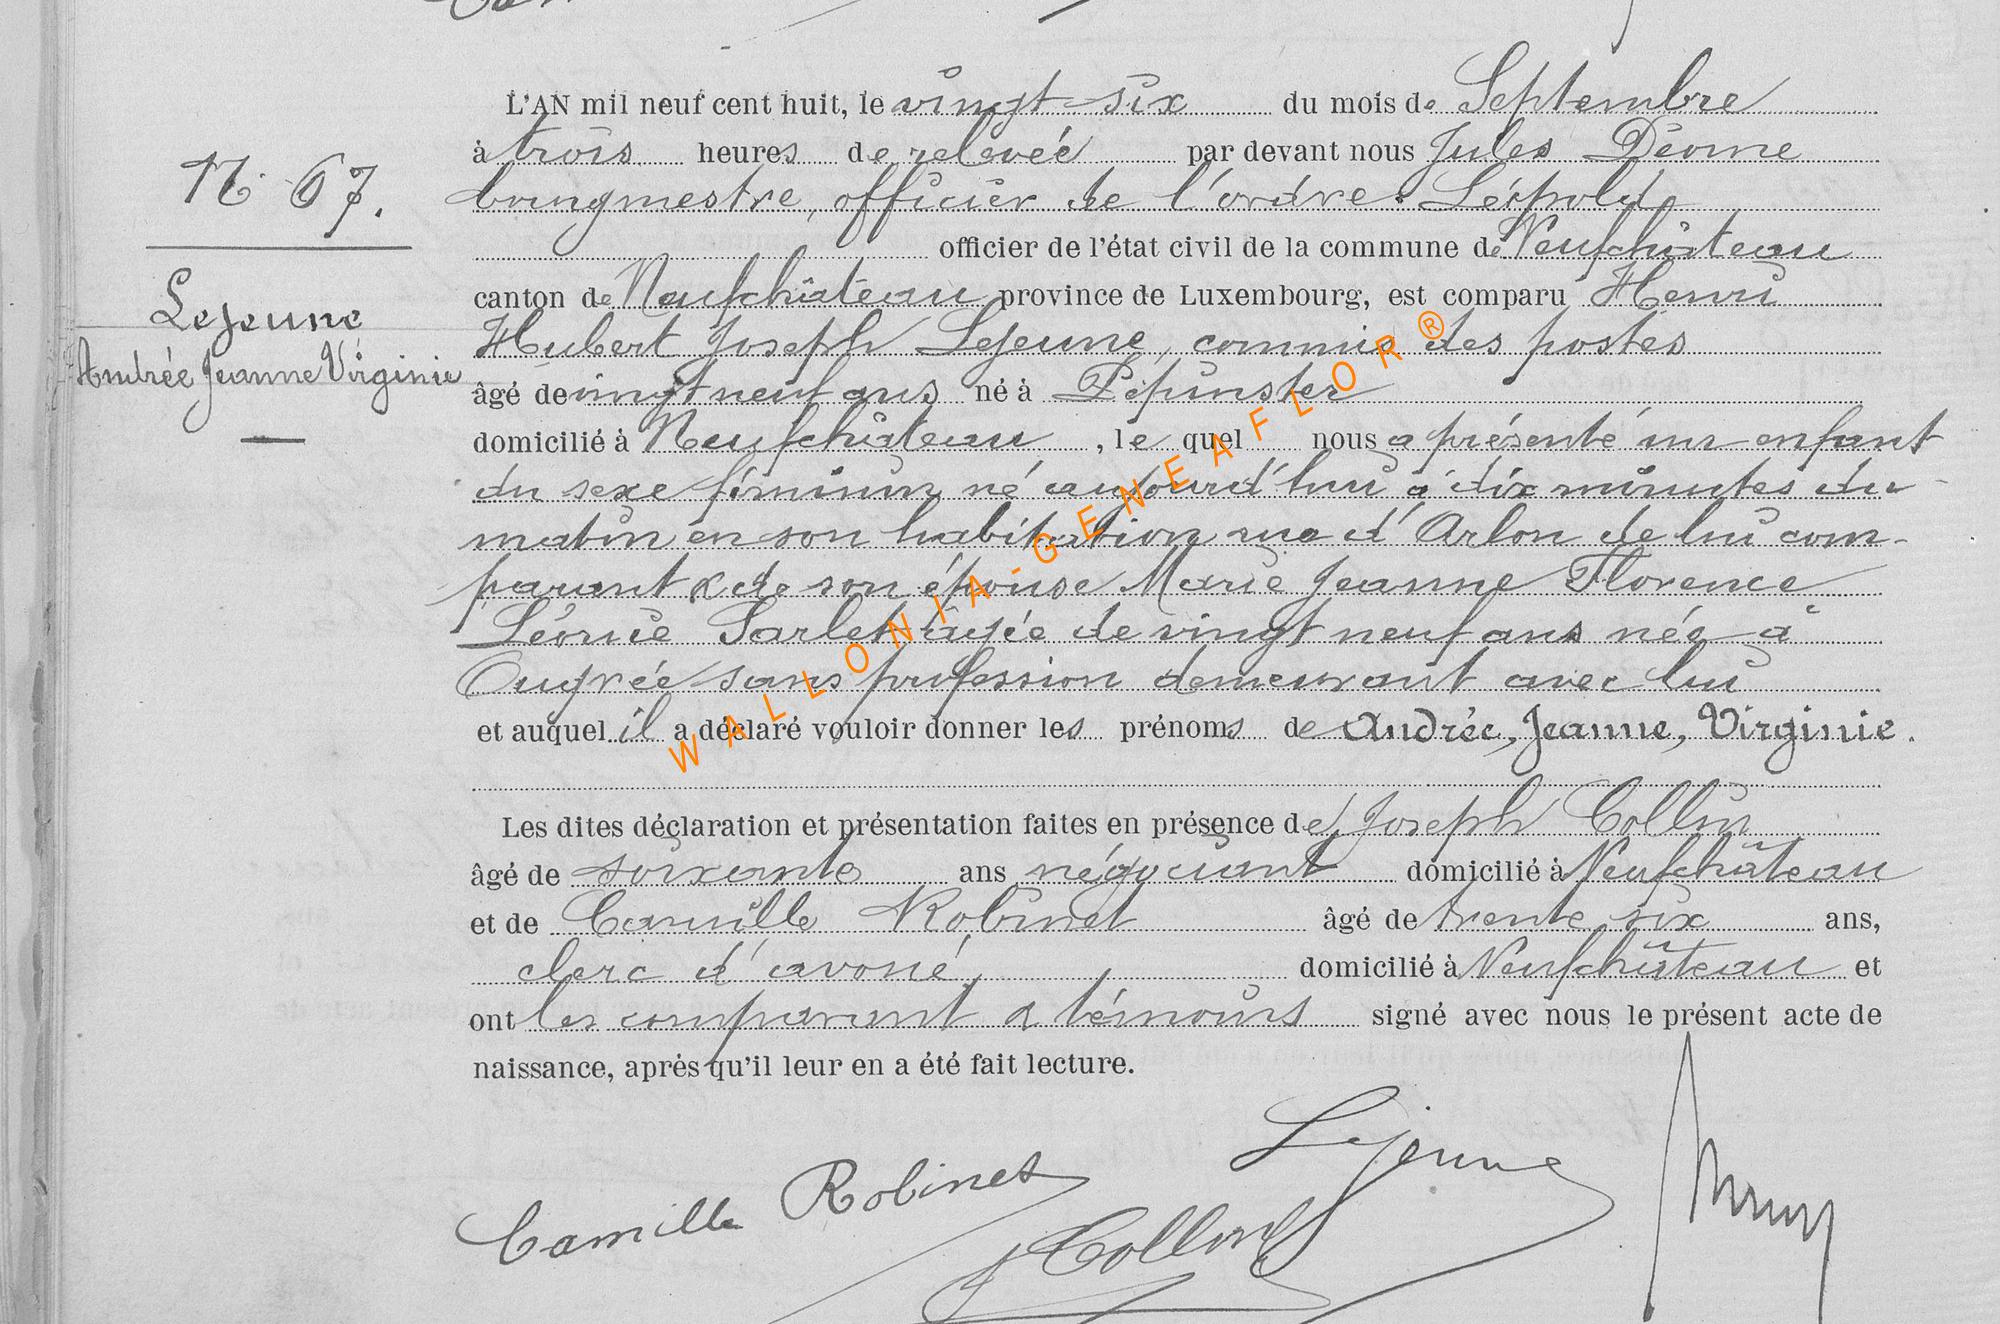 L'AN mil neuf cent huit, le vingt-six du mois de Septembre
à trois heures de relevée par devant nous Jules
N° 67.
bourgmestre, officier de l'ordre Léopold
officier de l'état civil de la commune de Neufchâteau
canton de Neufchâteau province de Luxembourg, est comparu Henri
Lejeune
Hubert Joseph Lejeune, commis des postes
Andrée Jeanne Virginie
âgé de vingt neuf ans né à Pépinster
domicilié à Neufchâteau, le quel nous a présenté un enfant
du sexe féminin né aujourd'hui à dix minutes du
matin en son habitation rue d'Arlon de lui com-
parant & de son épouse Marie Jeanne Florence
Léonie Sarlet âgée de vingt neuf ans née à
Ougrée sans profession demeurant avec lui
et auquel il a déclaré vouloir donner les prénoms de Andrée, Jeanne, Virginie.
Les dites déclaration et présentation faites en présence de Joseph Collin
âgé de soixante ans négociant domicilié à Neufchâteau
et de Camille Robinet âgé de trente six ans,
clerc d'avoué, domicilié à Neufchâteau et
ont les comparant & témoins signé avec nous le présent acte de
naissance, après qu'il leur en a été fait lecture.
Lejeune
Camille Robinet
J Collin
WALLONIA-GENEAFLOR®